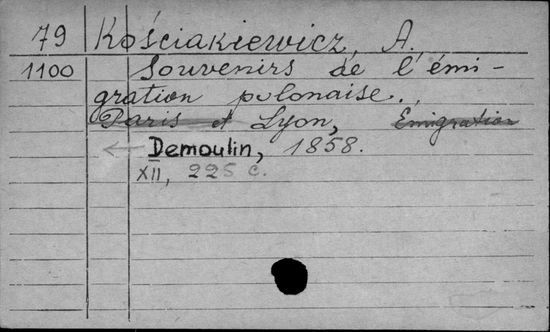 79 Kościakiewicz, A.
1100 Souvenirs de l'émi-
gration polonaise.
Paris et Lyon, Emigration
← Demoulin, 1858.
XII, 225 c.